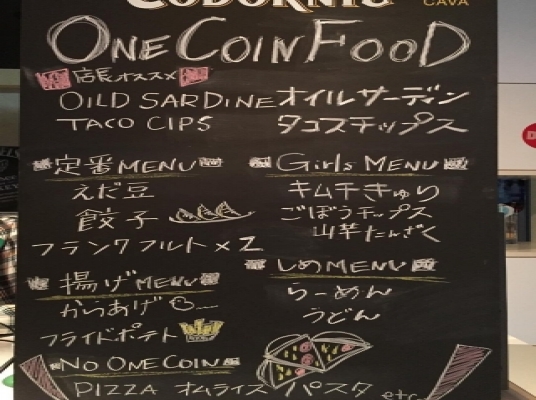 CODORNIU
CAVA
ONE COIN FOOD
店長オススメ
OILD SARDINE オイルサーディン
TACO CIPS タコスチップス
定番MENU
えだ豆
餃子
フランクフルト×2
揚げMENU
からあげ
フライドポテト
Girls MENU
キムチきゅり
ごぼうチップス
山芋たんざく
しめMENU
らーめん
うどん
NO ONE COIN
PIZZA オムライス パスタ etc..